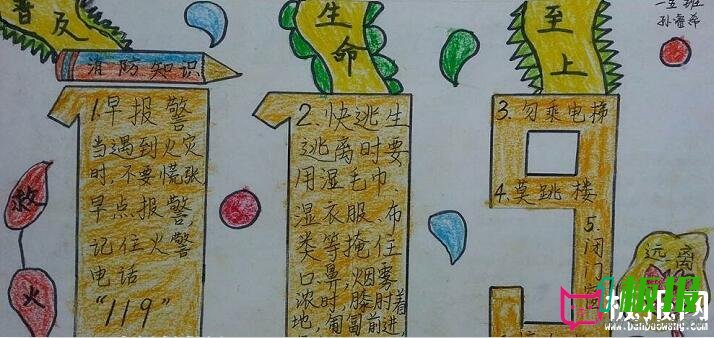 普及
生命
至上
消防知识
1.早报警
当遇到火灾
时,不要慌张
早点报警
记住火警
电话
"119"
2.快逃生
逃离时要
用湿毛巾、
湿衣服、布
类等掩住
口鼻,烟雾
浓时膝肘着
地,匍匐前进,
3.勿乘电梯
4.莫跳楼
5.闭门
救火
远离
板报网
www.banbaowang.com